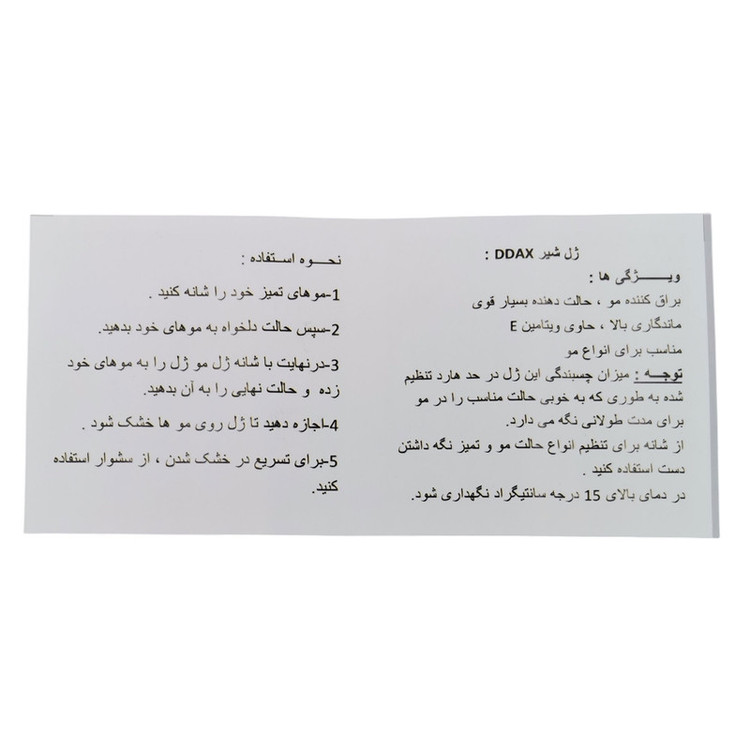 ژل شیر DDAX :
ویــــــژگی ها :
براق کننده مو ، حالت دهنده بسیار قوی
ماندگاری بالا ، حاوی ویتامین E
مناسب برای انواع مو
توجــه : میزان چسبندگی این ژل در حد هارد تنظیم
شده به طوری که به خوبی حالت مناسب را در مو
برای مدت طولانی نگه می دارد.
از شانه برای تنظیم انواع حالت مو و تمیز نگه داشتن
دست استفاده کنید .
در دمای بالای 15 درجه سانتیگراد نگهداری شود.
نحــوه اســتفاده :
1-موهای تمیز خود را شانه کنید .
2-سپس حالت دلخواه به موهای خود بدهید.
3-درنهایت با شانه ژل مو ژل را به موهای خود
زده و حالت نهایی را به آن بدهید.
4-اجازه دهید تا ژل روی مو ها خشک شود .
5-برای تسریع در خشک شدن ، از سشوار استفاده
کنید.